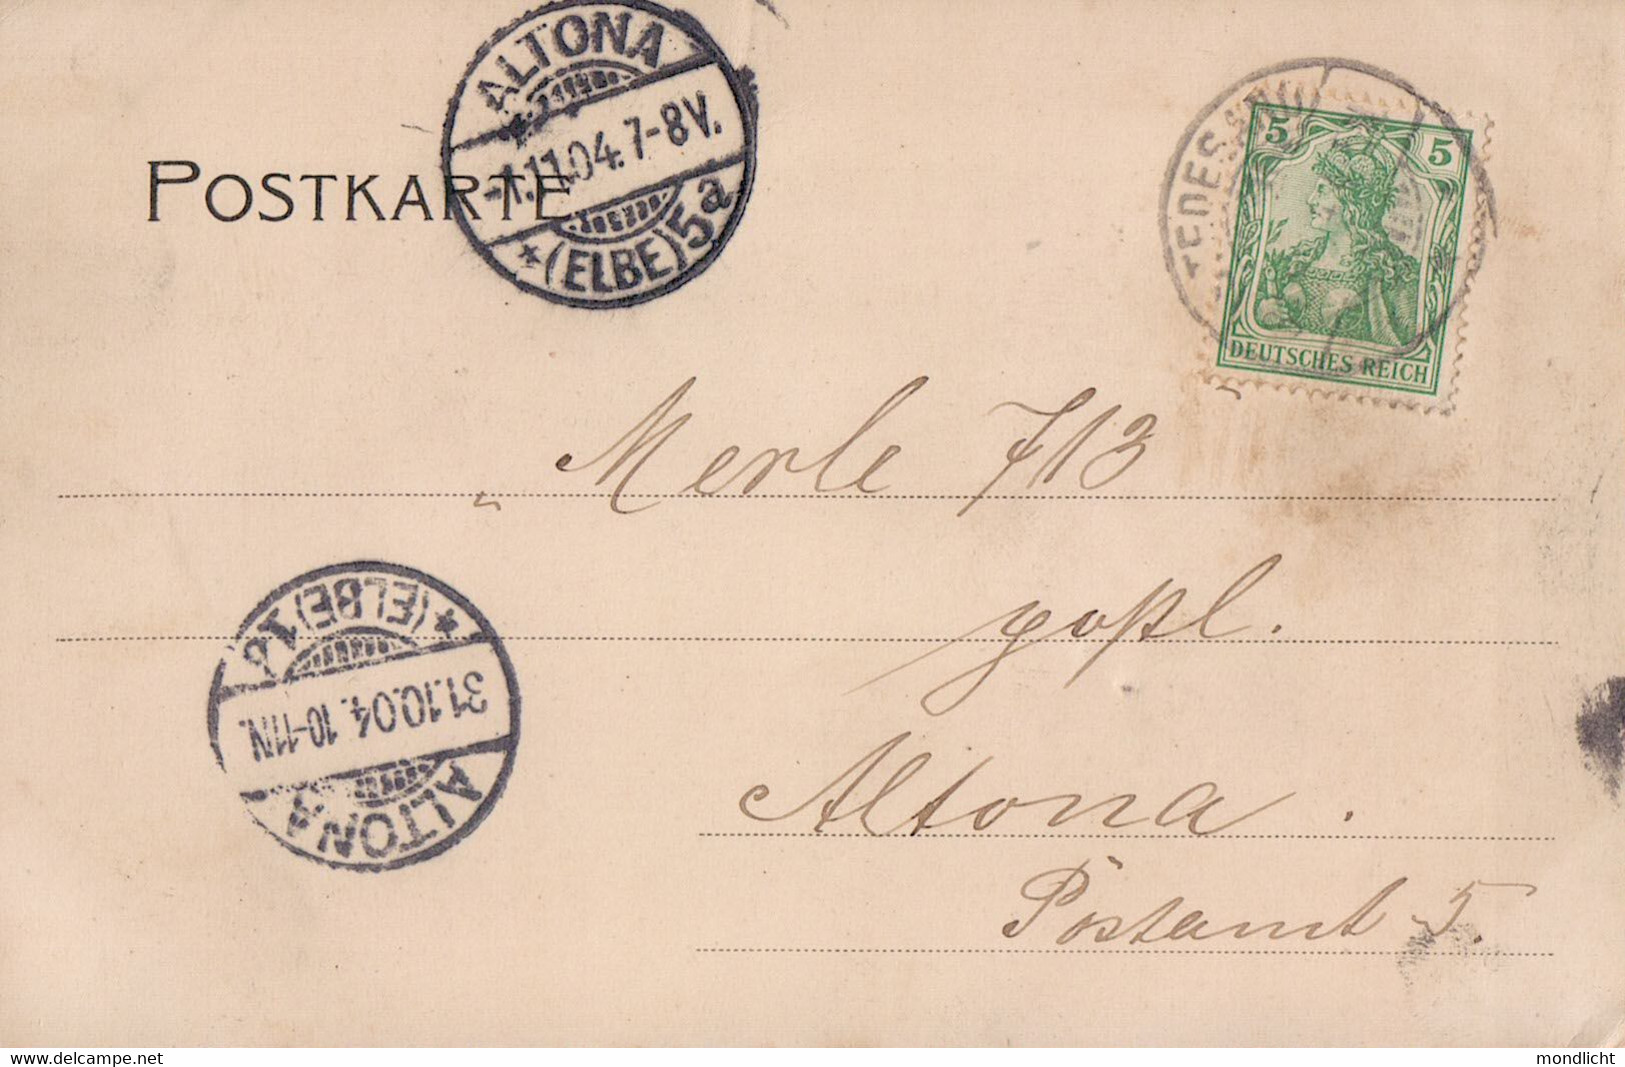 ALTONA
-1.11.04. 7-8V.
* (ELBE) 5a
POSTKARTE
5 5
DEUTSCHES REICH
„Merle 713"
postl.
Altona.
Postamt 5.
ALTONA
31.10.04. 10-11N.
* (ELBE) 1
mondlicht
www.delcampe.net